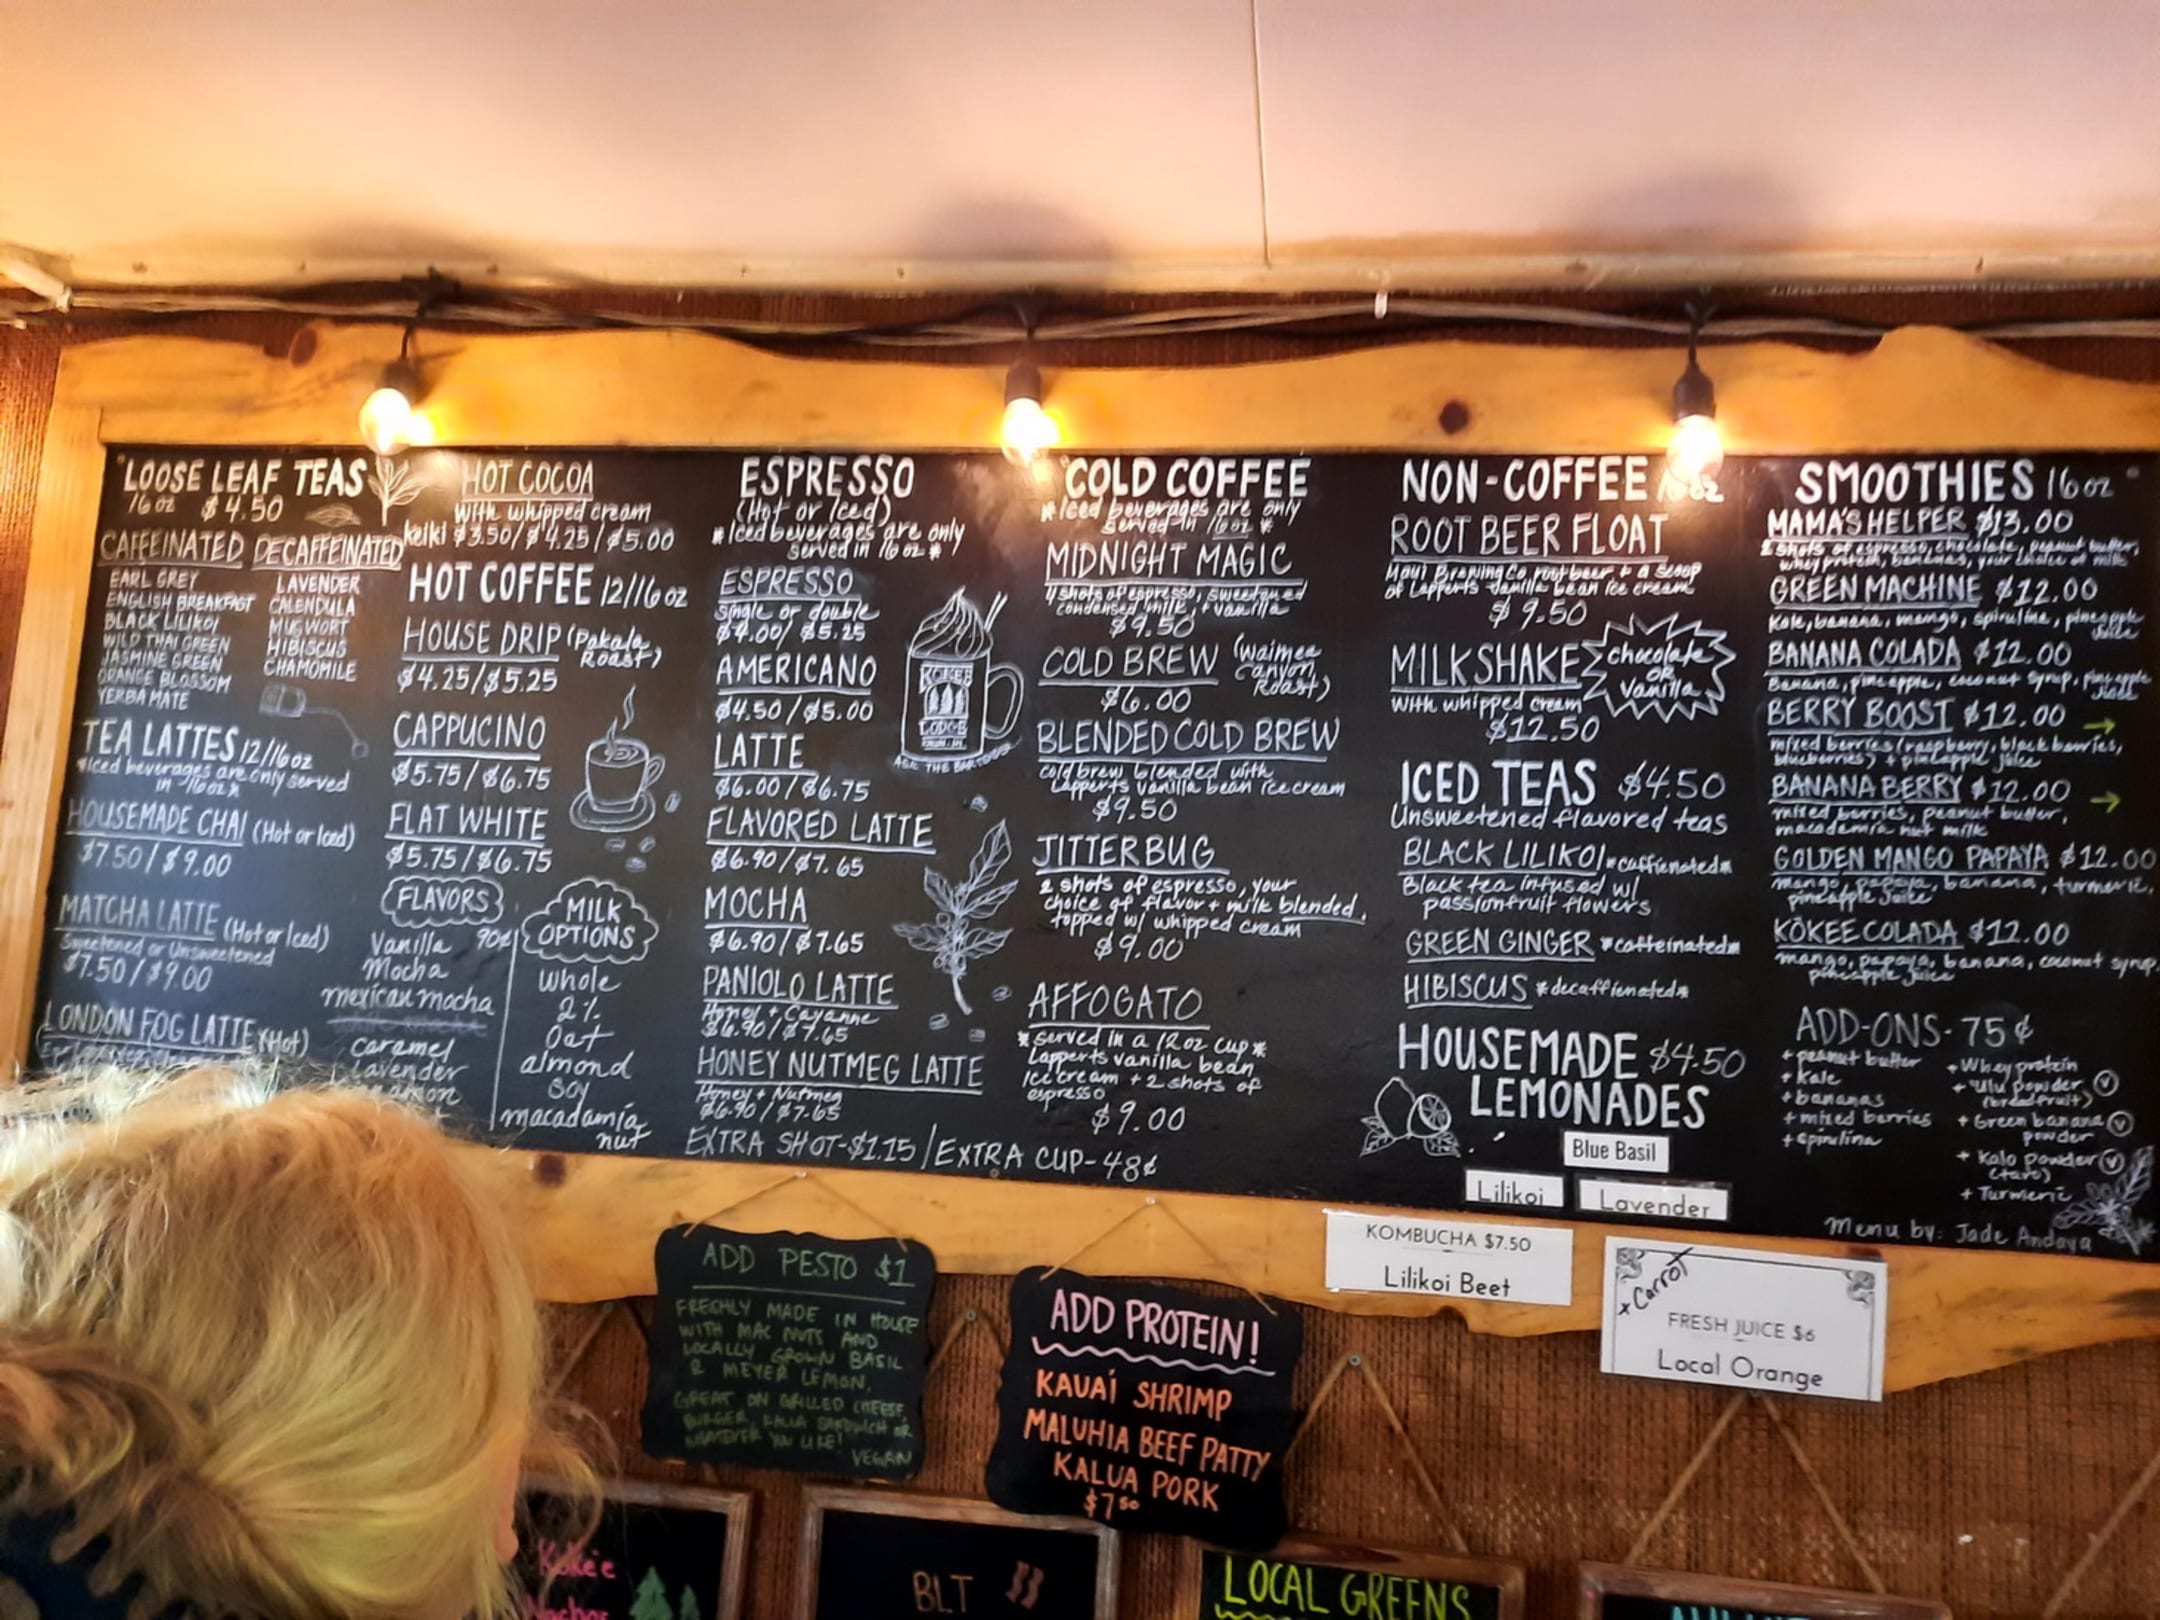 LOOSE LEAF TEAS
16 oz $4.50
CAFFEINATED
EARL GREY
ENGLISH BREAKFAST
BLACK LILIKOI
WILD THAI GREEN
JASMINE GREEN
ORANGE BLOSSOM
YERBA MATE
DECAFFEINATED
LAVENDER
CALENDULA
MUGWORT
HIBISCUS
CHAMOMILE
TEA LATTES 12/16oz
*Iced beverages are only served
in 16oz*
HOUSEMADE CHAI (Hot or Iced)
$7.50/$9.00
MATCHA LATTE (Hot or Iced)
Sweetened or Unsweetened
$7.50/$9.00
LONDON FOG LATTE (Hot)
HOT COCOA
with whipped cream
keiki $3.50/$4.25/$5.00
HOT COFFEE 12/16oz
HOUSE DRIP (Pakala
Roast)
$4.25/$5.25
CAPPUCINO
$5.75/$6.75
FLAT WHITE
$5.75/$6.75
FLAVORS
90¢
Vanilla
Mocha
mexican mocha
caramel
Lavender
MILK
OPTIONS
whole
2%
Oat
almond
Soy
macadamia
nut
ESPRESSO
(Hot or Iced)
*Iced beverages are only
served in 16oz*
ESPRESSO
Single or double
$4.00/$5.25
AMERICANO
$4.50/$5.00
LATTE
$6.00/$6.75
FLAVORED LATTE
$6.90/$7.65
MOCHA
$6.90/$7.65
PANIOLO LATTE
Honey + Cayanne
$6.90/$7.65
HONEY NUTMEG LATTE
Honey + Nutmeg
$6.90/$7.65
EXTRA SHOT-$1.15/EXTRA CUP-48¢
KOKEE
LODGE
ASK THE BARTENDER
COLD COFFEE
*Iced beverages are only
served in 16oz*
MIDNIGHT MAGIC
4 shots of espresso, sweetened
condensed milk, + vanilla
$9.50
COLD BREW (Waimea
Canyon
Roast)
$6.00
BLENDED COLD BREW
cold brew blended with
Lapperts vanilla bean ice cream
$9.50
JITTERBUG
2 shots of espresso, your
choice of flavor + milk blended,
topped w/ whipped cream
$9.00
AFFOGATO
*served in a 12oz cup*
Lapperts vanilla bean
Ice cream + 2 shots of
espresso
$9.00
NON-COFFEE
ROOT BEER FLOAT
Maui Brewing Co root beer + a scoop
of Lapperts vanilla bean ice cream
$9.50
MILKSHAKE
with whipped cream
$12.50
chocolate
OR
Vanilla
ICED TEAS $4.50
Unsweetened flavored teas
BLACK LILIKOI *caffienated*
Black tea infused w/
passionfruit flowers
GREEN GINGER *caffeinated*
HIBISCUS *decaffienated*
HOUSEMADE $4.50
LEMONADES
Blue Basil
Lilikoi
Lavender
SMOOTHIES 16oz
MAMA'S HELPER $13.00
2 shots of espresso, chocolate, peanut butter,
whey protein, bananas, your choice of milk
GREEN MACHINE $12.00
Kale, banana, mango, spirulina, pineapple
juice
BANANA COLADA $12.00
Banana, pineapple, coconut syrup, pineapple
juice
BERRY BOOST $12.00 →
mixed berries (raspberry, blackberries,
blueberries) + pineapple juice
BANANA BERRY $12.00 →
mixed berries, peanut butter,
macadamia nut milk
GOLDEN MANGO PAPAYA $12.00
mango, papaya, banana, turmeric,
pineapple juice
KŌKEE COLADA $12.00
mango, papaya, banana, coconut syrup,
pineapple juice
ADD-ONS-75¢
+ peanut butter
+ Kale
+ bananas
+ mixed berries
+ spirulina
+ Whey protein
+ 'Ulu powder V
(breadfruit)
+ Green banana V
powder
+ Kalo powder V
(taro)
+ Turmeric
Menu by: Jade Andaya
KOMBUCHA $7.50
Lilikoi Beet
x Carrot
FRESH JUICE $6
Local Orange
ADD PESTO $1
FRECHLY MADE IN HOUSE
WITH MAC NUTS AND
LOCALLY GROWN BASIL
& MEYER LEMON.
GREAT ON GRILLED CHEESE,
BURGER, KALUA SANDWICH OR
WHATEVER YOU LIKE!
VEGAN
ADD PROTEIN!
KAUAI SHRIMP
MALUHIA BEEF PATTY
KALUA PORK
$7⁵⁰
Koke'e
Nachos
BLT
LOCAL GREENS